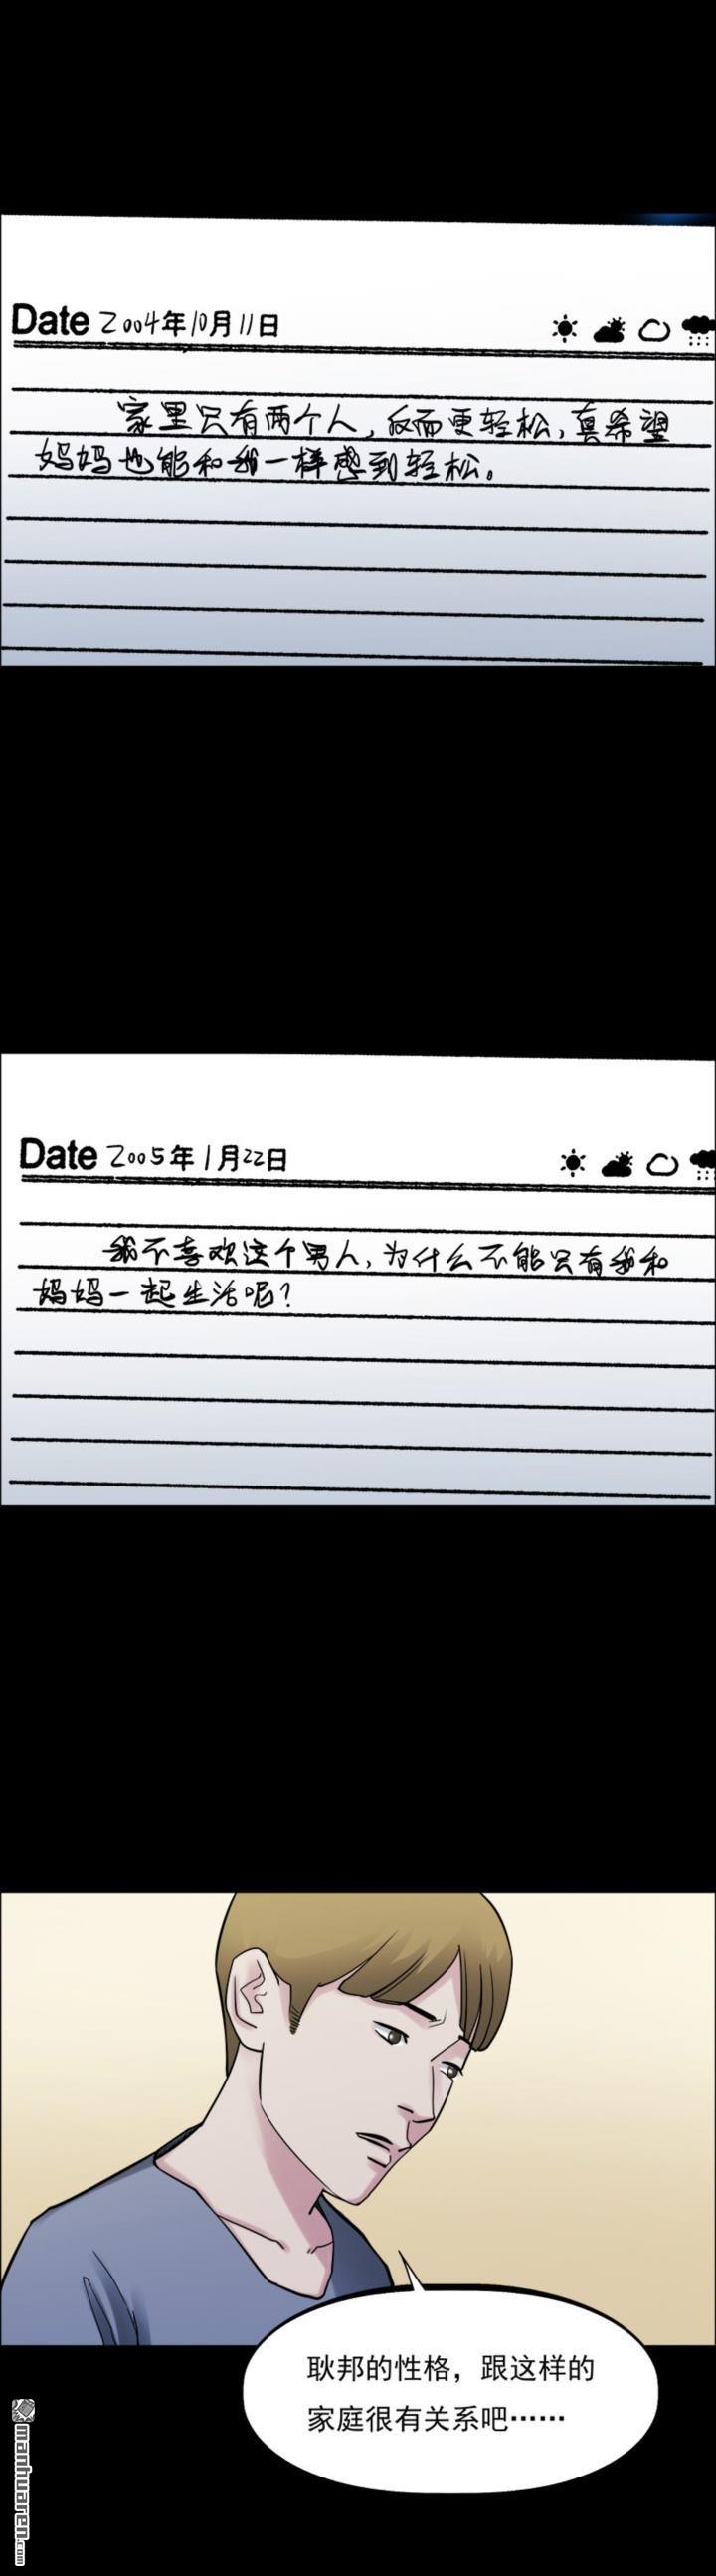 Date 2004年10月11日
家里只有两个人，反而更轻松，真希望
妈妈也能和我一样感到轻松。
Date 2005年1月22日
我不喜欢这个男人，为什么不能只有我和
妈妈一起生活呢？
耿邦的性格，跟这样的
家庭很有关系吧……
manhuaren.com